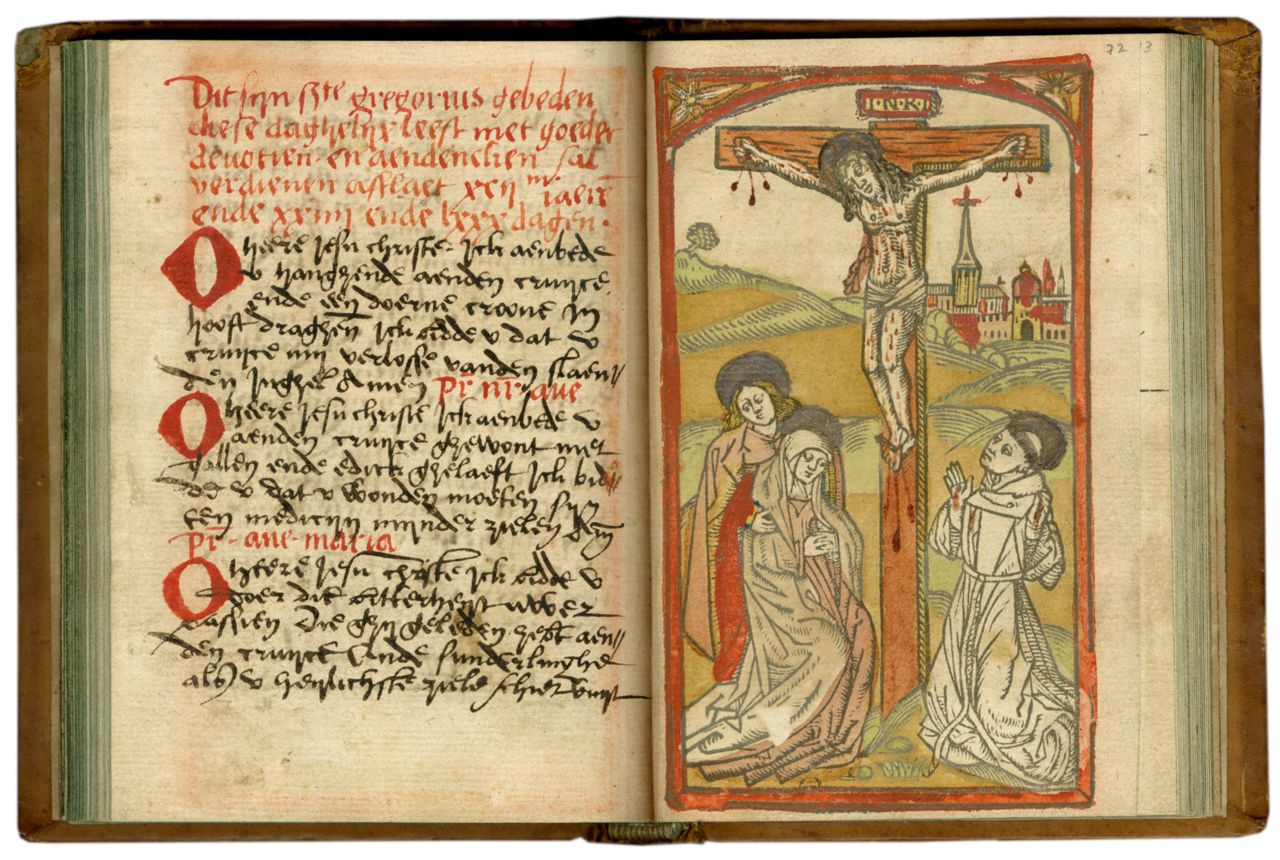 Dit sijn ste gregorius gebeden
diese daghelijx leest met goeder
devotien en aendencken sal
verdienen aflaet xcij m jaerē
ende xxiiij ende lxxx dagen.
O heere jesu christe Ick aenbede
v hanghende aenden cruyce
ende een doerne croone in
hooft draghen Ick bidde v dat v
cruyce mij verlosse vanden slaen
den Inghel Amen pr̄ nr̄ ave
O heere Jesu christe Ick aenbede v
aenden cruyce ghewont met
gallen ende edick ghelaeft Ick bid
de v dat v wonden moeten sijn
een medicijn mijnder zielen
pr̄ ave maria
O heere Jesu christe Ick bidde v
doer die bitterheyt uwer
passien Die ghij geleden hebt aen
den cruyce Ende sunderlinghe
als v ziele schier
72 13